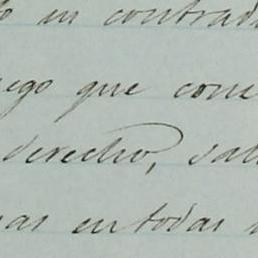 in contrad
ego que com
derecho, sal
as en todas